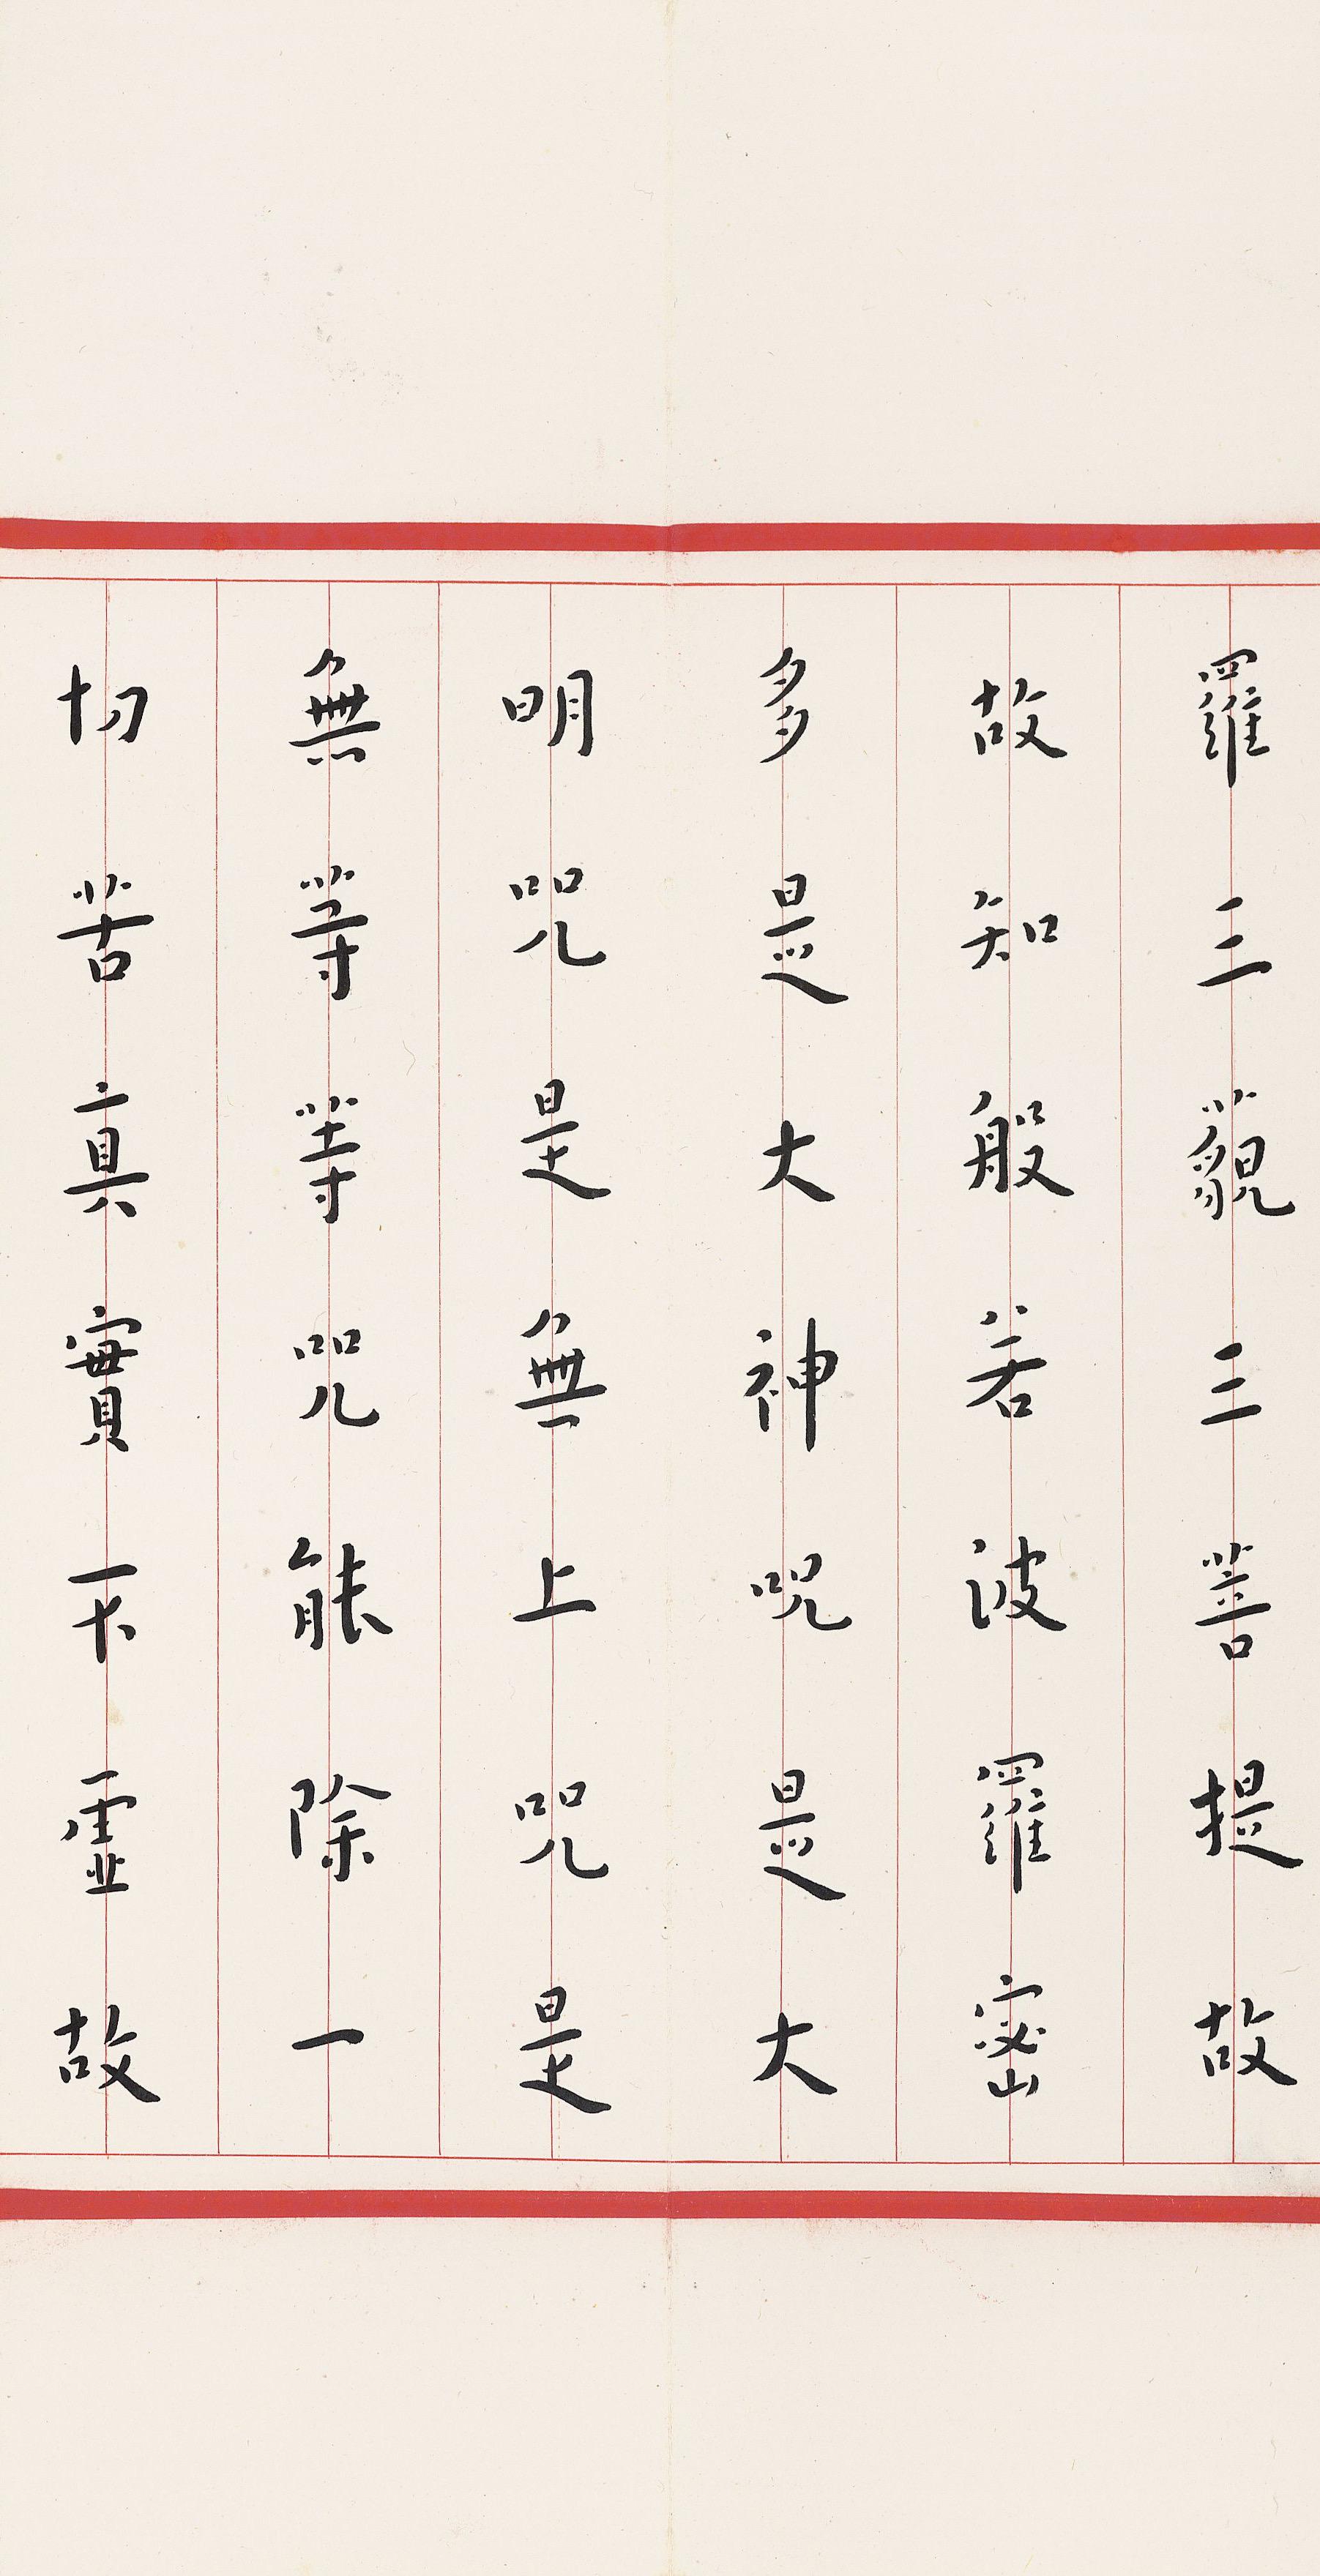 羅三藐三菩提故
故知般若波羅密
多是大神呪是大
明咒是無上咒是
無等等咒能除一
切苦真實不虛故